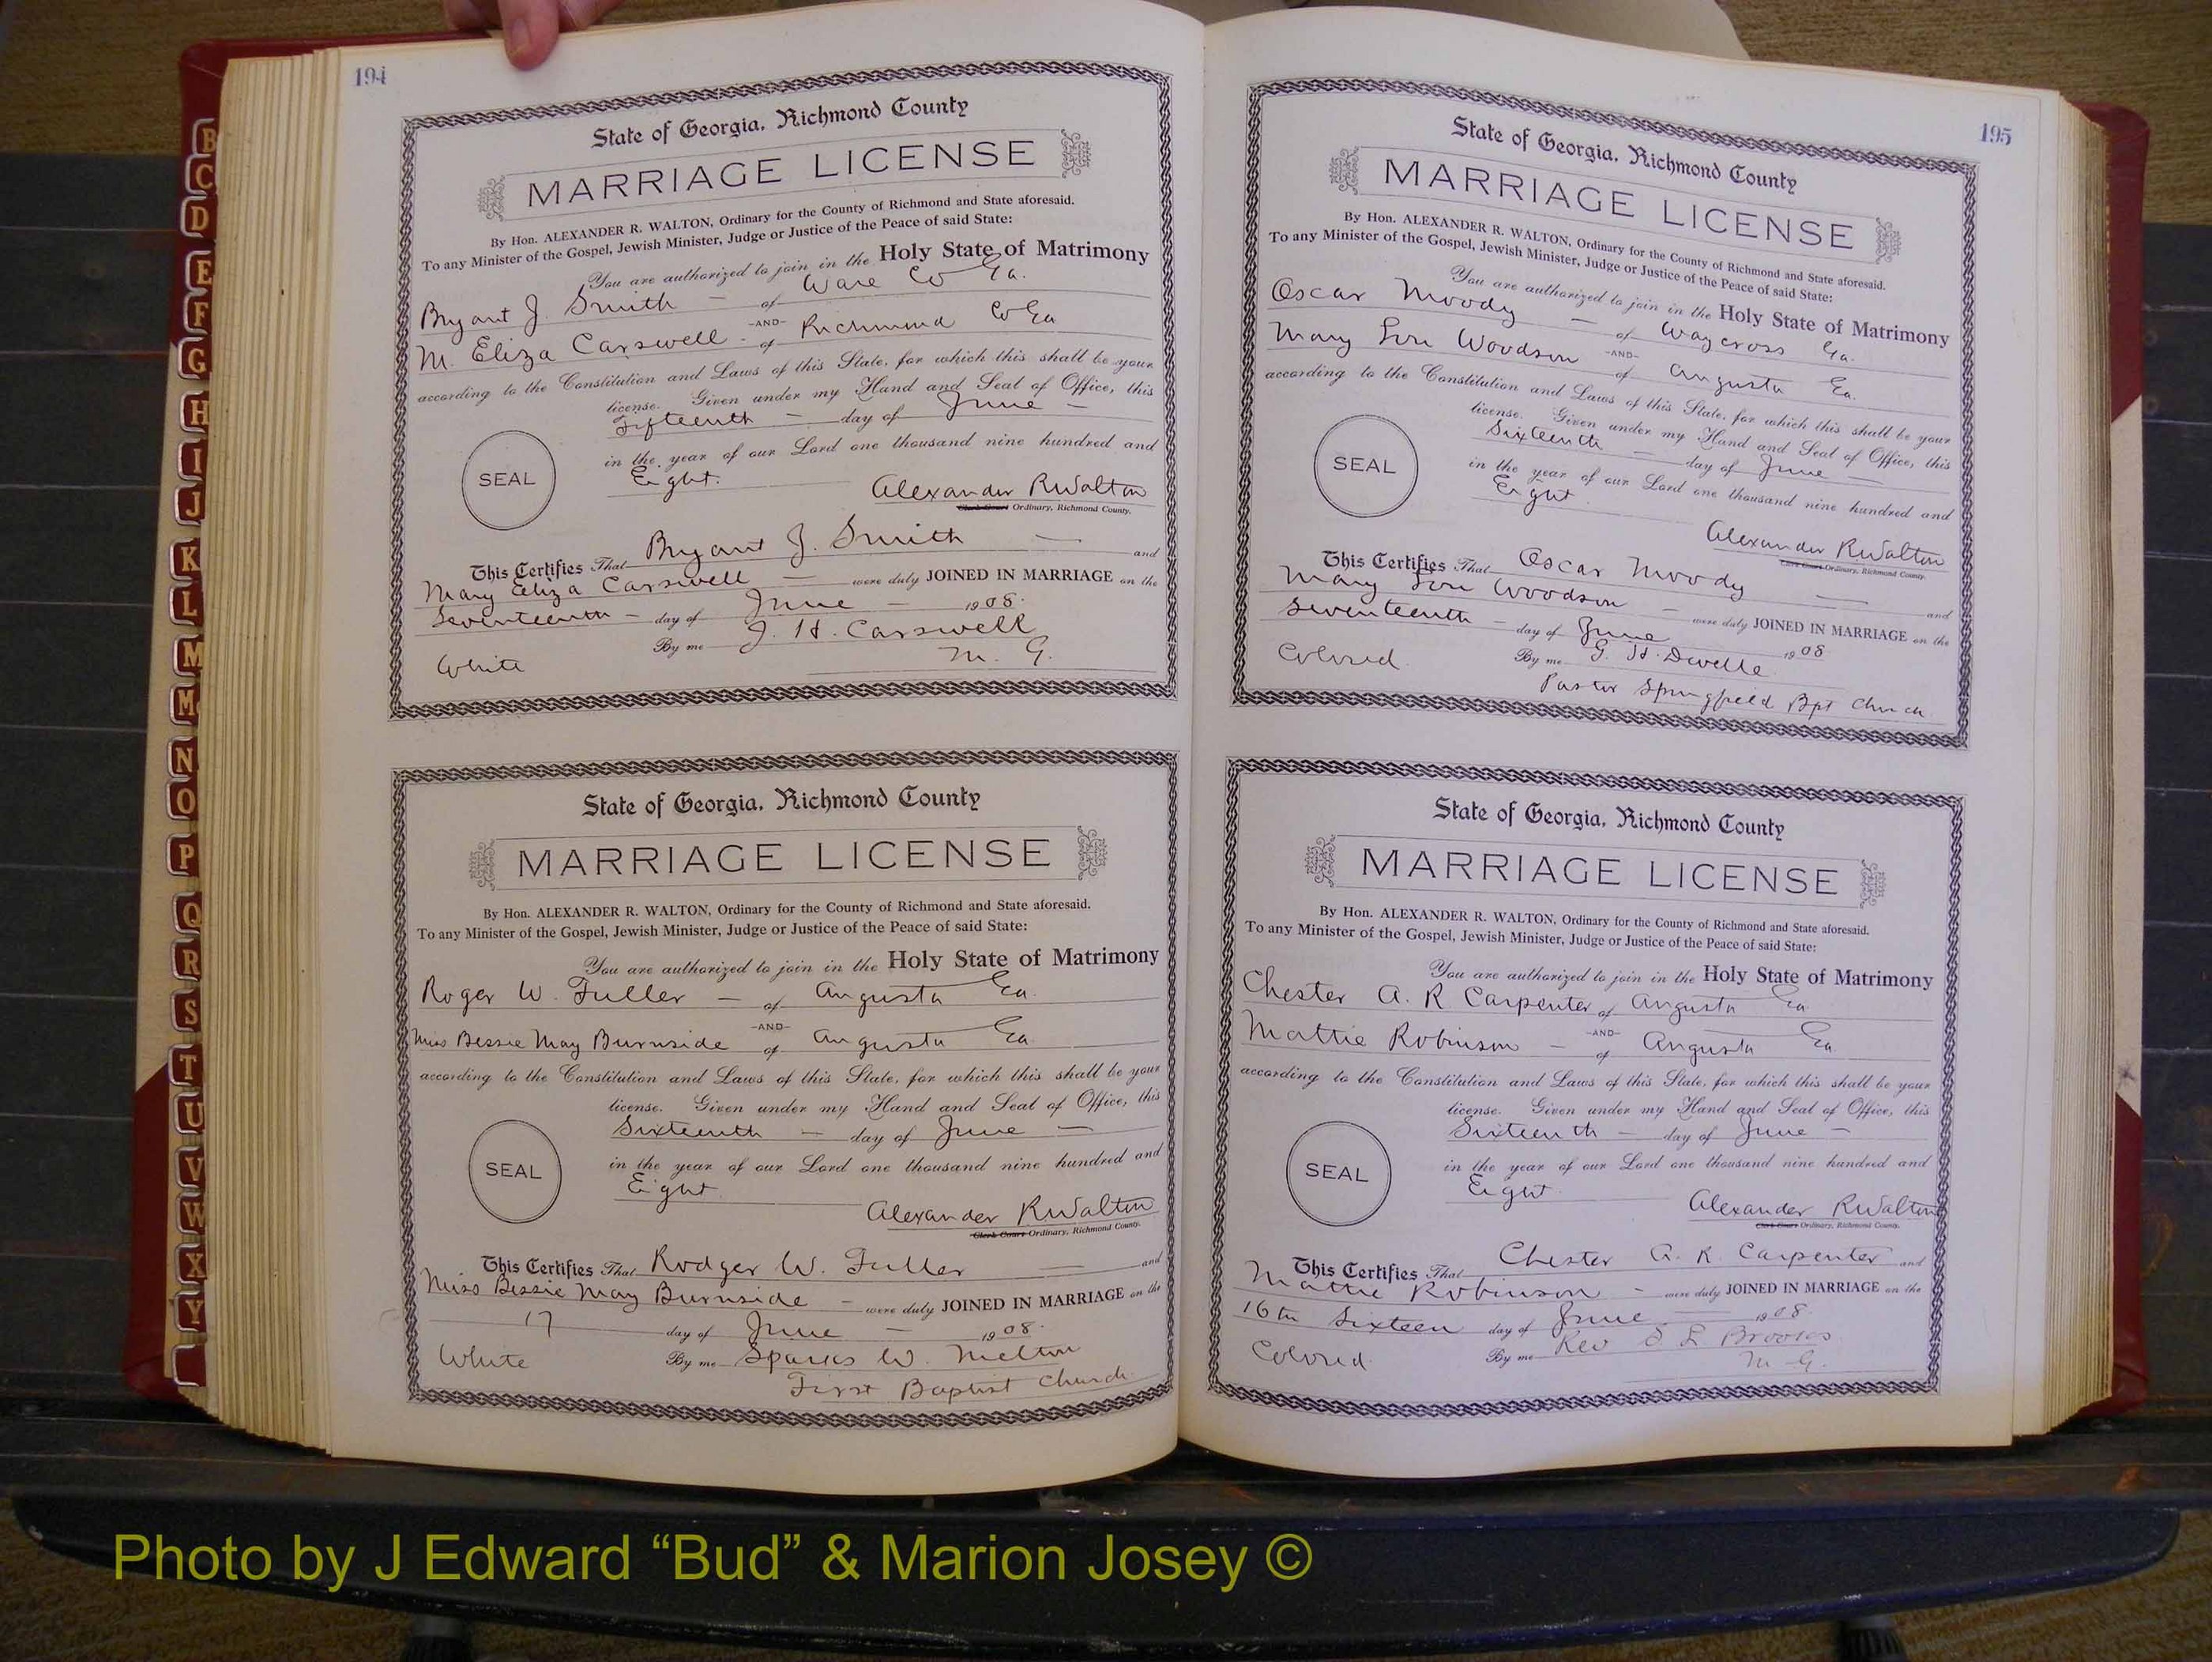 194
State of Georgia, Richmond County
MARRIAGE LICENSE
By Hon. ALEXANDER R. WALTON, Ordinary for the County of Richmond and State aforesaid.
To any Minister of the Gospel, Jewish Minister, Judge or Justice of the Peace of said State:
You are authorized to join in the Holy State of Matrimony
Bryant J. Smith - of Ware Co Ga.
-AND-
M. Eliza Carswell - of Richmond Co Ga
according to the Constitution and Laws of this State, for which this shall be your
license. Given under my Hand and Seal of Office, this
Fifteenth - day of June -
in the year of our Lord one thousand nine hundred and
Eight.
SEAL
Alexander R Walton
Clerk Court Ordinary, Richmond County.
This Certifies That Bryant J. Smith - and
Mary Eliza Carswell - were duly JOINED IN MARRIAGE on the
Seventeenth - day of June - 1908.
By me J. H. Carswell
White M. G.
State of Georgia, Richmond County
MARRIAGE LICENSE
By Hon. ALEXANDER R. WALTON, Ordinary for the County of Richmond and State aforesaid.
To any Minister of the Gospel, Jewish Minister, Judge or Justice of the Peace of said State:
You are authorized to join in the Holy State of Matrimony
Roger W. Fuller - of Augusta Ga.
-AND-
Miss Bessie May Burnside of Augusta Ga
according to the Constitution and Laws of this State, for which this shall be your
license. Given under my Hand and Seal of Office, this
Sixteenth - day of June -
in the year of our Lord one thousand nine hundred and
Eight.
SEAL
Alexander R Walton
Clerk Court Ordinary, Richmond County.
This Certifies That Rodger W. Fuller - and
Miss Bessie May Burnside - were duly JOINED IN MARRIAGE on the
17 day of June - 1908.
White By me Sparks W. Melton
First Baptist Church.
195
State of Georgia, Richmond County
MARRIAGE LICENSE
By Hon. ALEXANDER R. WALTON, Ordinary for the County of Richmond and State aforesaid.
To any Minister of the Gospel, Jewish Minister, Judge or Justice of the Peace of said State:
You are authorized to join in the Holy State of Matrimony
Oscar Moody - of Waycross Ga.
-AND-
Mary Lou Woodson of Augusta Ga.
according to the Constitution and Laws of this State, for which this shall be your
license. Given under my Hand and Seal of Office, this
Sixteenth - day of June -
in the year of our Lord one thousand nine hundred and
Eight
SEAL
Alexander R Walton
Clerk Court Ordinary, Richmond County.
This Certifies That Oscar Moody - and
Mary Lou Woodson - were duly JOINED IN MARRIAGE on the
Seventeenth - day of June 1908
Colored. By me G. H. Dwelle
Pastor Springfield Bpt Church.
State of Georgia, Richmond County
MARRIAGE LICENSE
By Hon. ALEXANDER R. WALTON, Ordinary for the County of Richmond and State aforesaid.
To any Minister of the Gospel, Jewish Minister, Judge or Justice of the Peace of said State:
You are authorized to join in the Holy State of Matrimony
Chester A. R Carpenter of Augusta Ga
-AND-
Mattie Robinson - of Augusta Ga
according to the Constitution and Laws of this State, for which this shall be your
license. Given under my Hand and Seal of Office, this
Sixteenth - day of June -
in the year of our Lord one thousand nine hundred and
Eight.
SEAL
Alexander R Walton
Clerk Court Ordinary, Richmond County.
This Certifies That Chester A. R. Carpenter and
Mattie Robinson - were duly JOINED IN MARRIAGE on the
16th Sixteen day of June 1908.
Colored. By me Rev S L Brooks
M-G.
B
C
D
E
F
G
H
I
J
K
L
M
M
N
O
P
Q
R
S
T
U
V
W
X
Y
Photo by J Edward “Bud” & Marion Josey ©